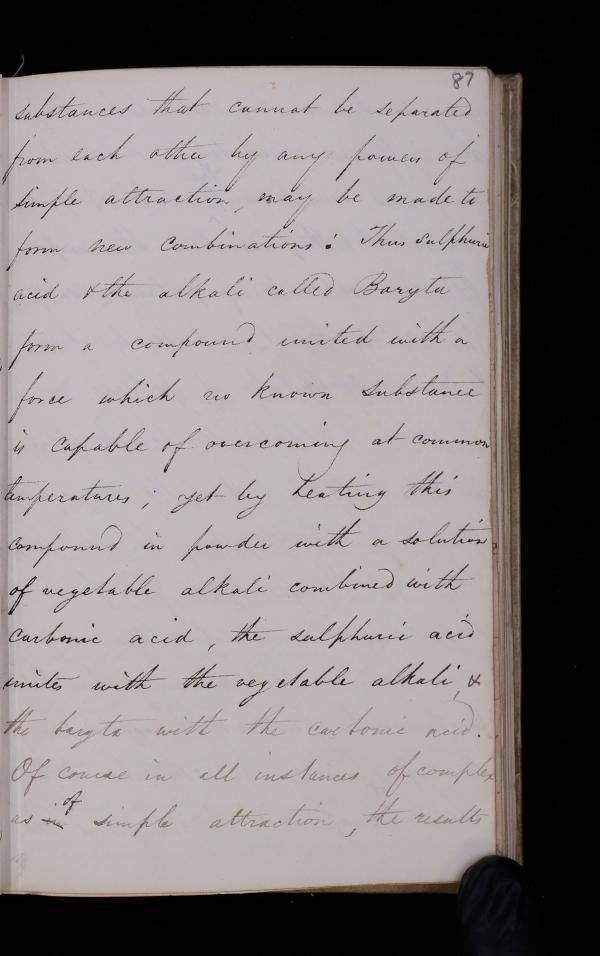 87
substances that cannot be separated
from each other by any powers of
simple attraction, may be made to
form new combinations: Thus sulphuric
acid & the alkali called Baryta
form a compound united with a
force which no known substance
is capable of overcoming at common
temperatures; yet by heating this
compound in powder with a solution
of vegetable alkali combined with
carbonic acid, the sulphuric acid
unites with the vegetable alkali, &
the baryta with the carbonic acid.
Of course in all instances of complex
of
as in simple attraction, the results